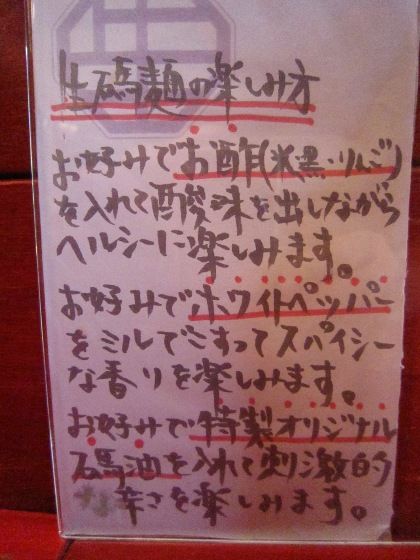 生碼麺の楽しみ方
お好みでお酢(米・黒・りんご)
を入れて酸味を出しながら
ヘルシーに楽しみます。
お好みでホワイトペッパー
をミルでこすってスパイシー
な香りを楽しみます。
お好みで特製オリジナル
石馬油を入れて刺激的
な辛さを楽しみます。